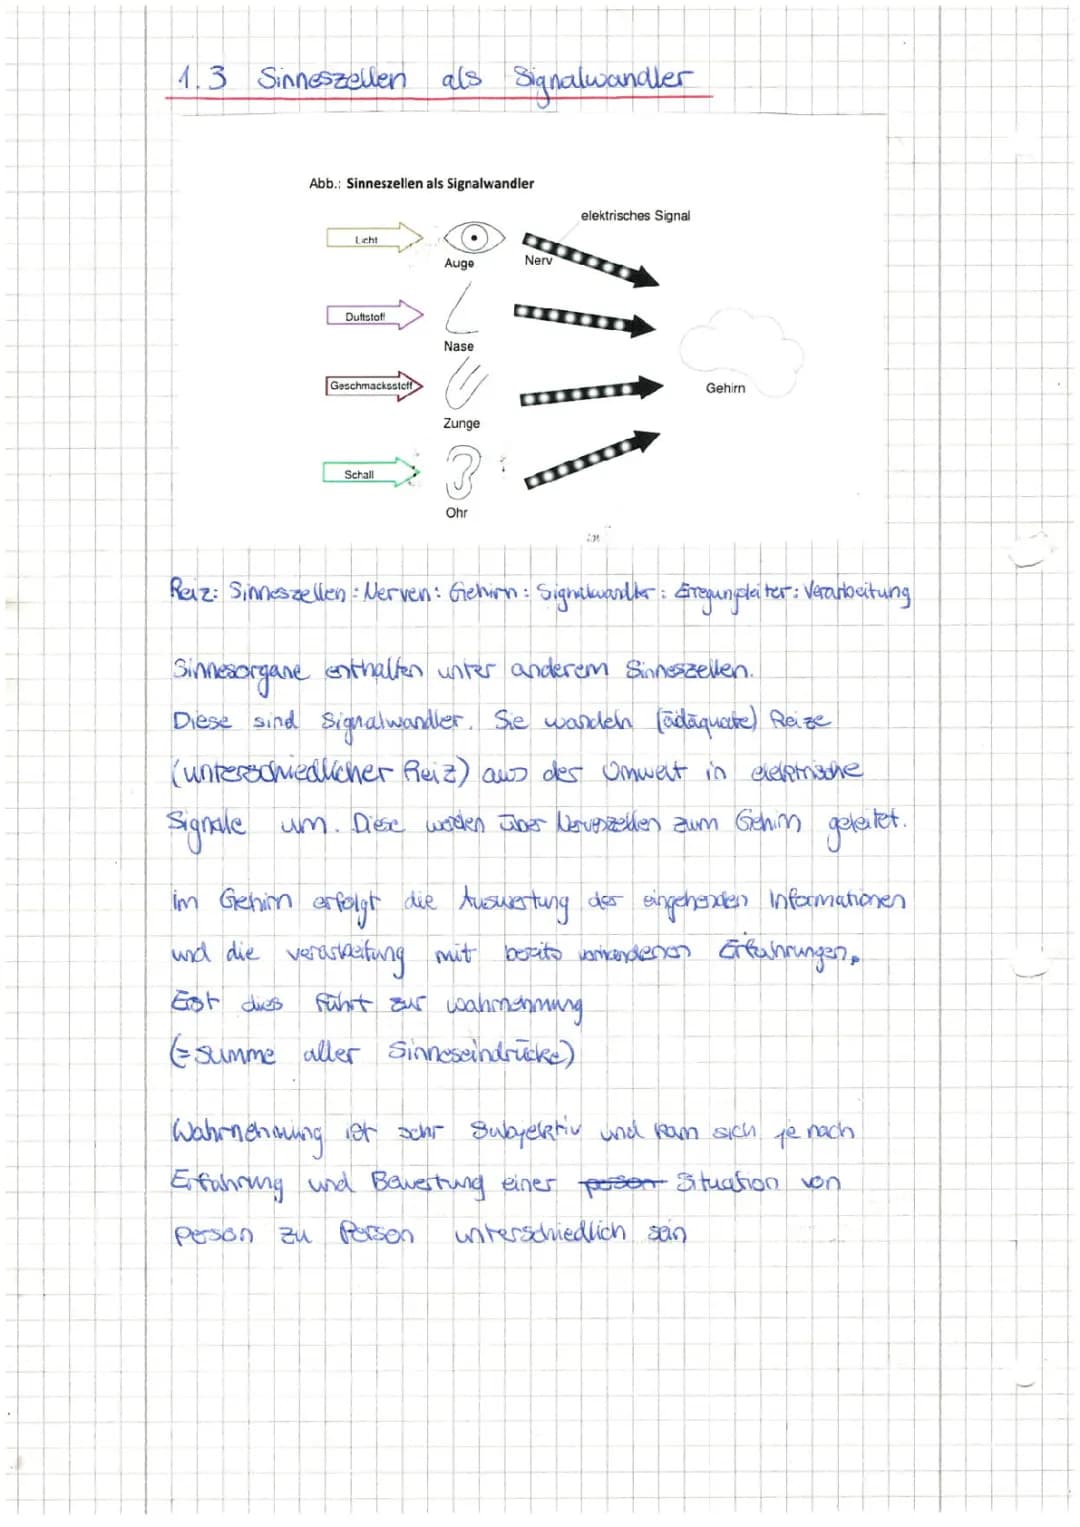 1.3 Sinneszellen als Signalwandler
Abb.: Sinneszellen als Signalwandler
elektrisches Signal
Licht
Auge
Nerv
Duftstoff
Nase
Geschmacksstoff
Zunge
Gehirn
Schall
Ohr
Reiz: Sinneszellen: Nerven: Gehirn: Signalwandler: Erregungsleiter: Verarbeitung
Sinnesorgane enthalten unter anderem Sinneszellen.
Diese sind Signalwandler. Sie wandeln (adäquate) Reize
(unterschiedlicher Reiz) aus der Umwelt in elektrische
Signale um. Diese werden über Nervenzellen zum Gehirn geleitet.
im Gehirn erfolgt die Auswertung der eingehenden Informationen
und die verarbeitung mit bereits vorhandenen Erfahrungen.
Erst dies führt zur wahrnehmung
(=summe aller Sinneseindrücke)
Wahrnehmung ist sehr Subjektiv und kann sich je nach
Erfahrung und Bewertung einer person Situation von
person zu Person unterschiedlich sein